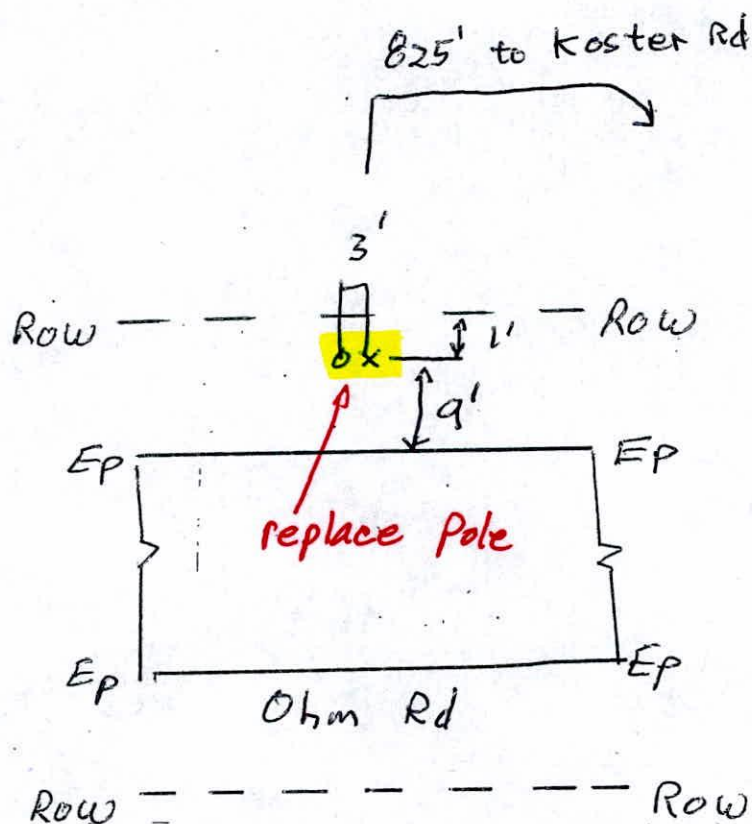 825' to Koster Rd
3'
Row Row
1'
o x
9'
Ep Ep
replace Pole
Ep Ep
Ohm Rd
Row Row